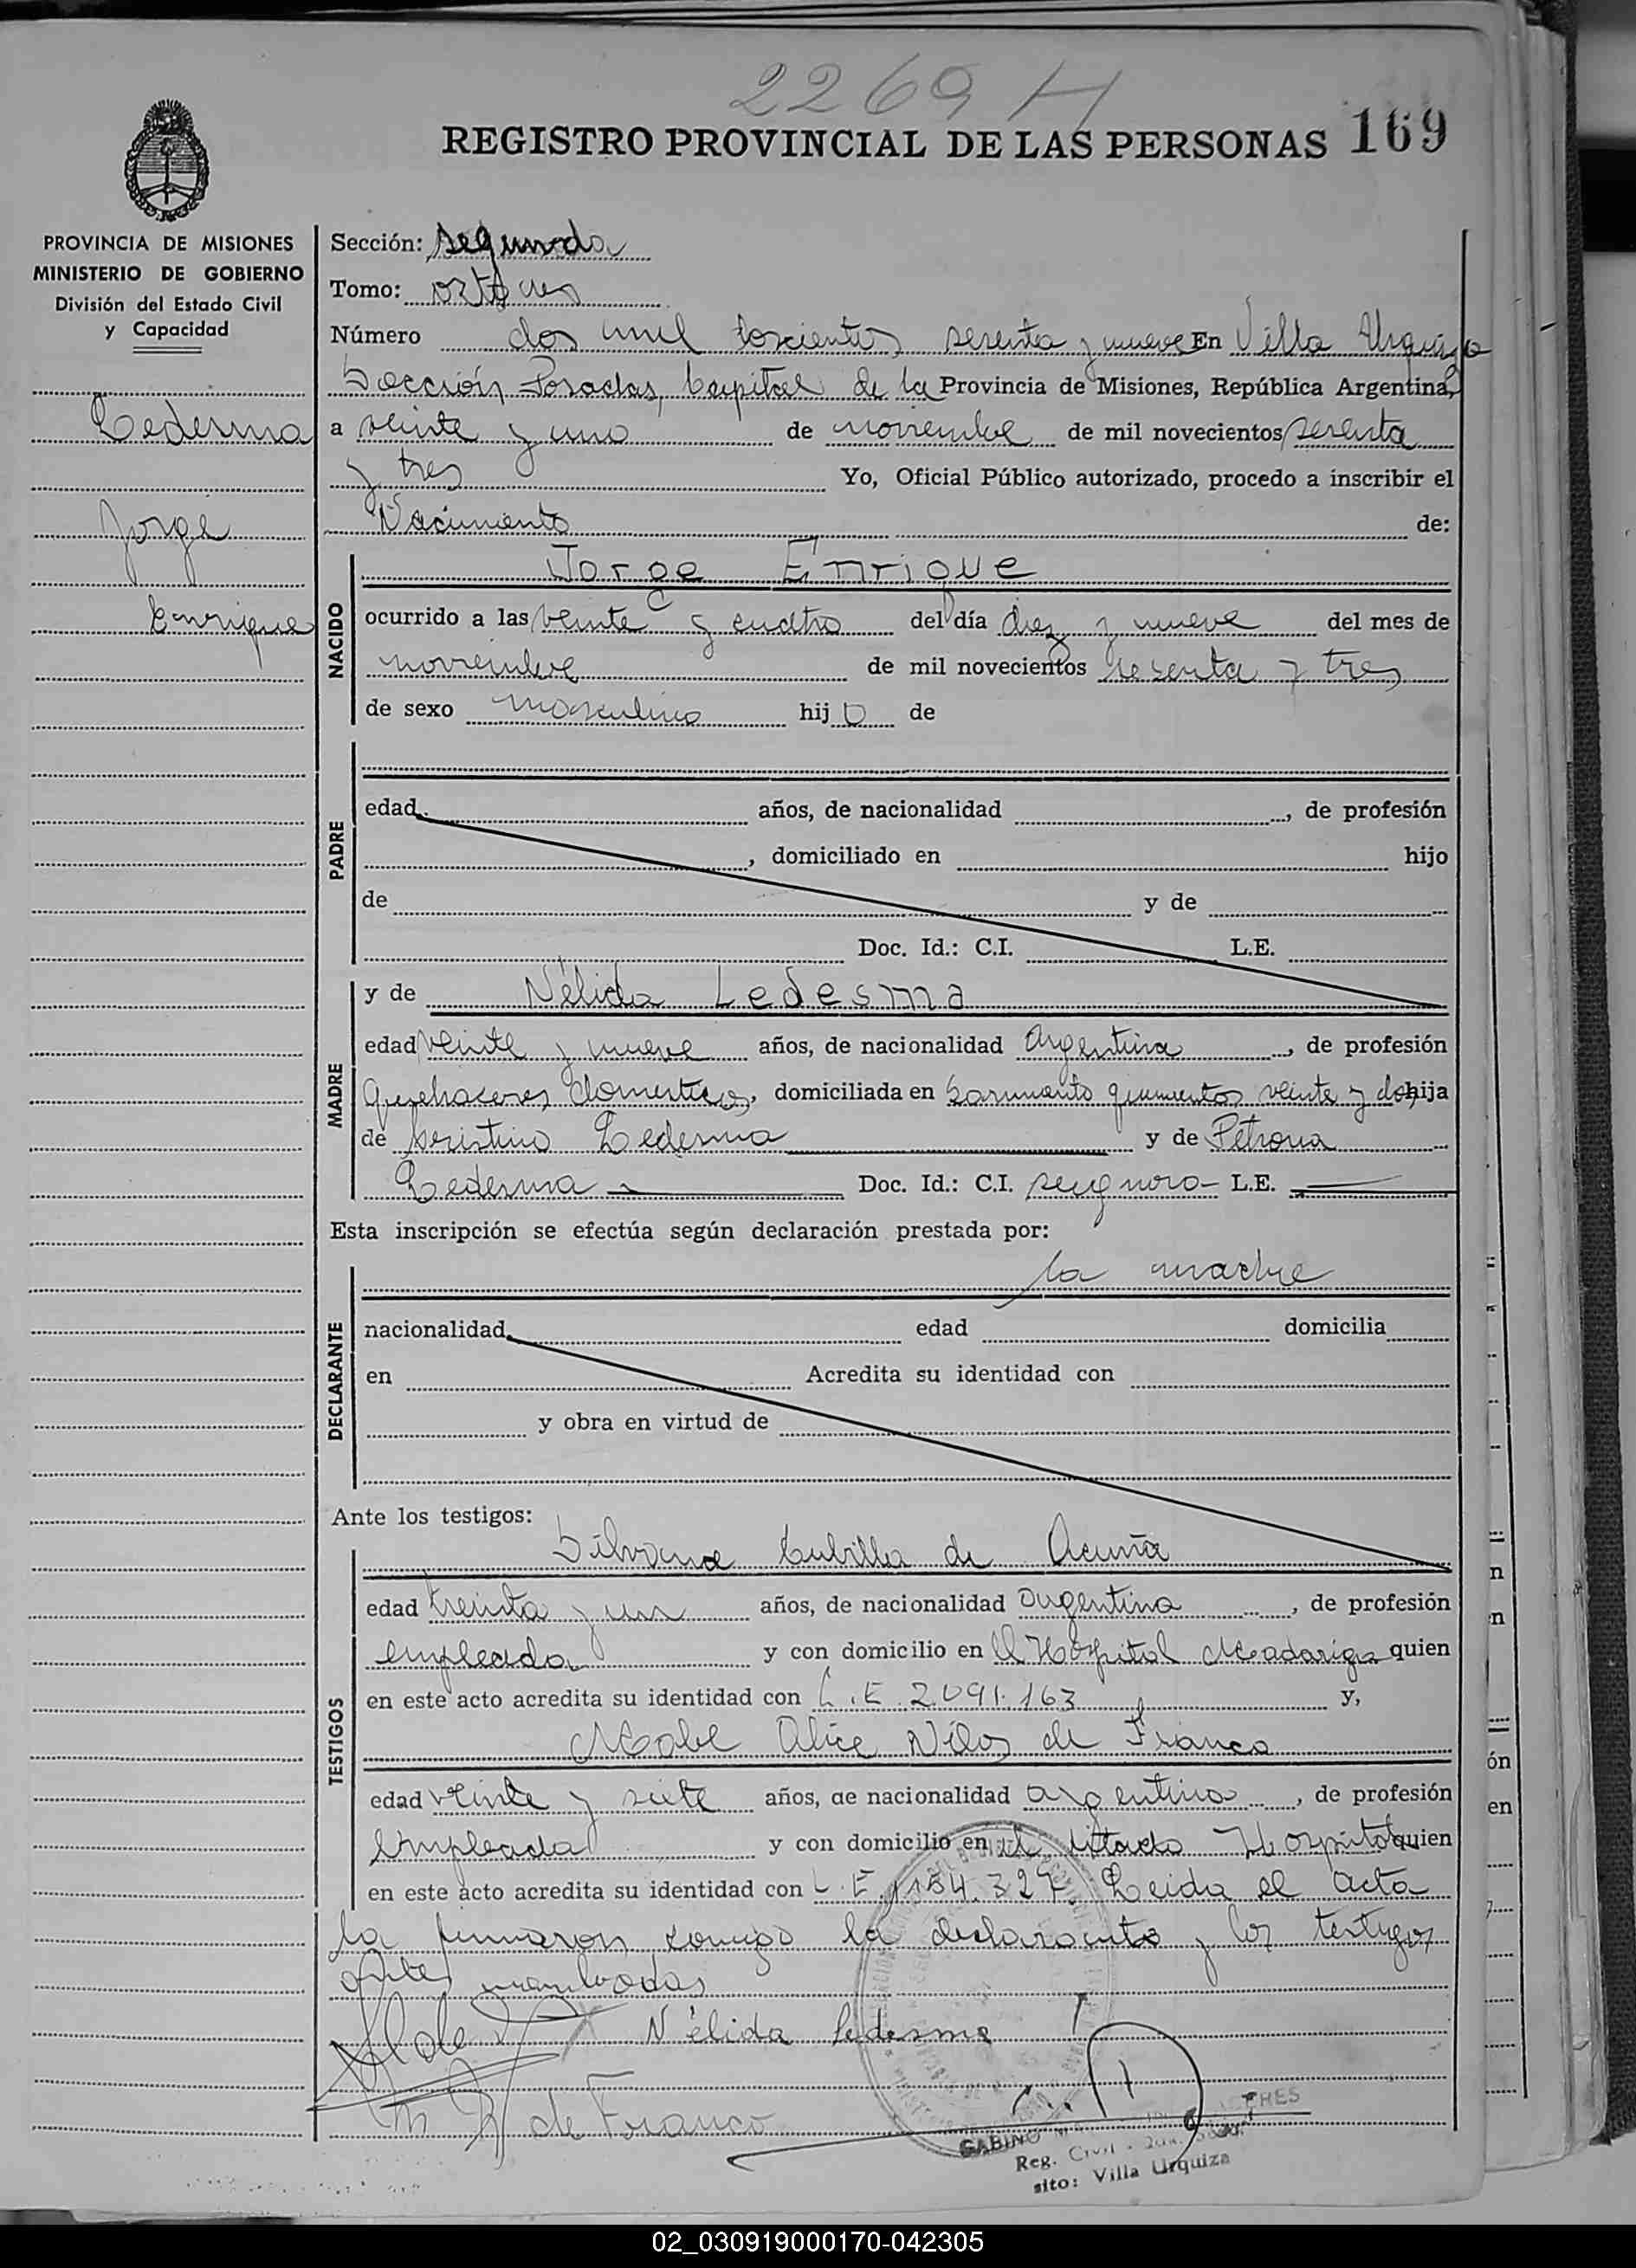 2269 H
REGISTRO PROVINCIAL DE LAS PERSONAS 169
PROVINCIA DE MISIONES
MINISTERIO DE GOBIERNO
División del Estado Civil
y Capacidad
Ledesma
Jorge
Enrique
Sección: segunda
Tomo:
Número dos mil doscientos sesenta y nueve En Villa Urquiza
Sección Posadas, Capital de la Provincia de Misiones, República Argentina,
a veinte y uno de noviembre de mil novecientos sesenta
y tres Yo, Oficial Público autorizado, procedo a inscribir el
Nacimiento de:
NACIDO
Jorge Enrique
ocurrido a las veinte y cuatro del día diez y nueve del mes de
noviembre de mil novecientos sesenta y tres
de sexo masculino hijo de
PADRE
edad años, de nacionalidad , de profesión
, domiciliado en hijo
de y de
Doc. Id.: C.I. L.E.
MADRE
y de Nélida Ledesma
edad veinte y nueve años, de nacionalidad Argentina , de profesión
Quehaceres domesticos, domiciliada en Sarmiento quinientos veinte y dos hija
de Ledesma y de Petrona
Ledesma Doc. Id.: C.I. L.E.
Esta inscripción se efectúa según declaración prestada por:
DECLARANTE
la madre
nacionalidad edad domicilia
en Acredita su identidad con
y obra en virtud de
Ante los testigos:
TESTIGOS
Silvana Cubilla de Acuña
edad treinta y un años, de nacionalidad argentina , de profesión
empleada y con domicilio en el Hospital Madariaga quien
en este acto acredita su identidad con L.E 2.091.163 y,
Mabel Alice de Franco
edad veinte y siete años, de nacionalidad argentina , de profesión
Empleada y con domicilio en el citado Hospital quien
en este acto acredita su identidad con L.E. Leida el acta
la firmaron conmigo la declarante y los testigos
antes nombrados
Nélida Ledesma
de Franco
GABINO
Reg. Civil
sito: Villa Urquiza
02_030919000170-042305